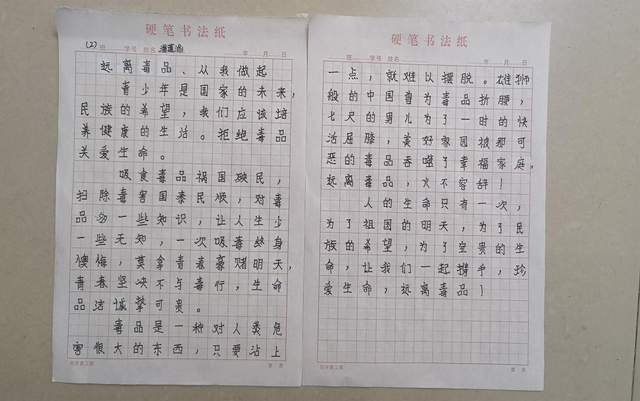 硬笔书法纸
(2) 班 学号 姓名 年 月 日
远离毒品、从我做起
青少年是国家的未来，
民族的希望，我们应该培
养健康的生活。拒绝毒品
关爱生命。
吸食毒品祸国殃民，
扫除毒害国泰民顺，对毒
品多一些知识，让人生少
一些无知，一次吸毒终身
懊悔，莫拿青春豪赌明天，
青春坚决不与毒行，生命
品洁诚挚可贵。
毒品是一种对人类危
害很大的东西，只要沾上
硬笔书法纸
班 学号 姓名 年 月 日
一点，就难以摆脱。雄狮
般的中国曾为毒品折腰，
七尺的男儿为了一时的快
活屈膝，美好家园被那可
恶的毒品吞噬了幸福家庭。
远离毒品，义不容辞！
人的生命只有一次，
为了祖国的明天，为了民
族的希望，为了宝贵的生
命，让我们一起携手，珍
爱生命，远离毒品！